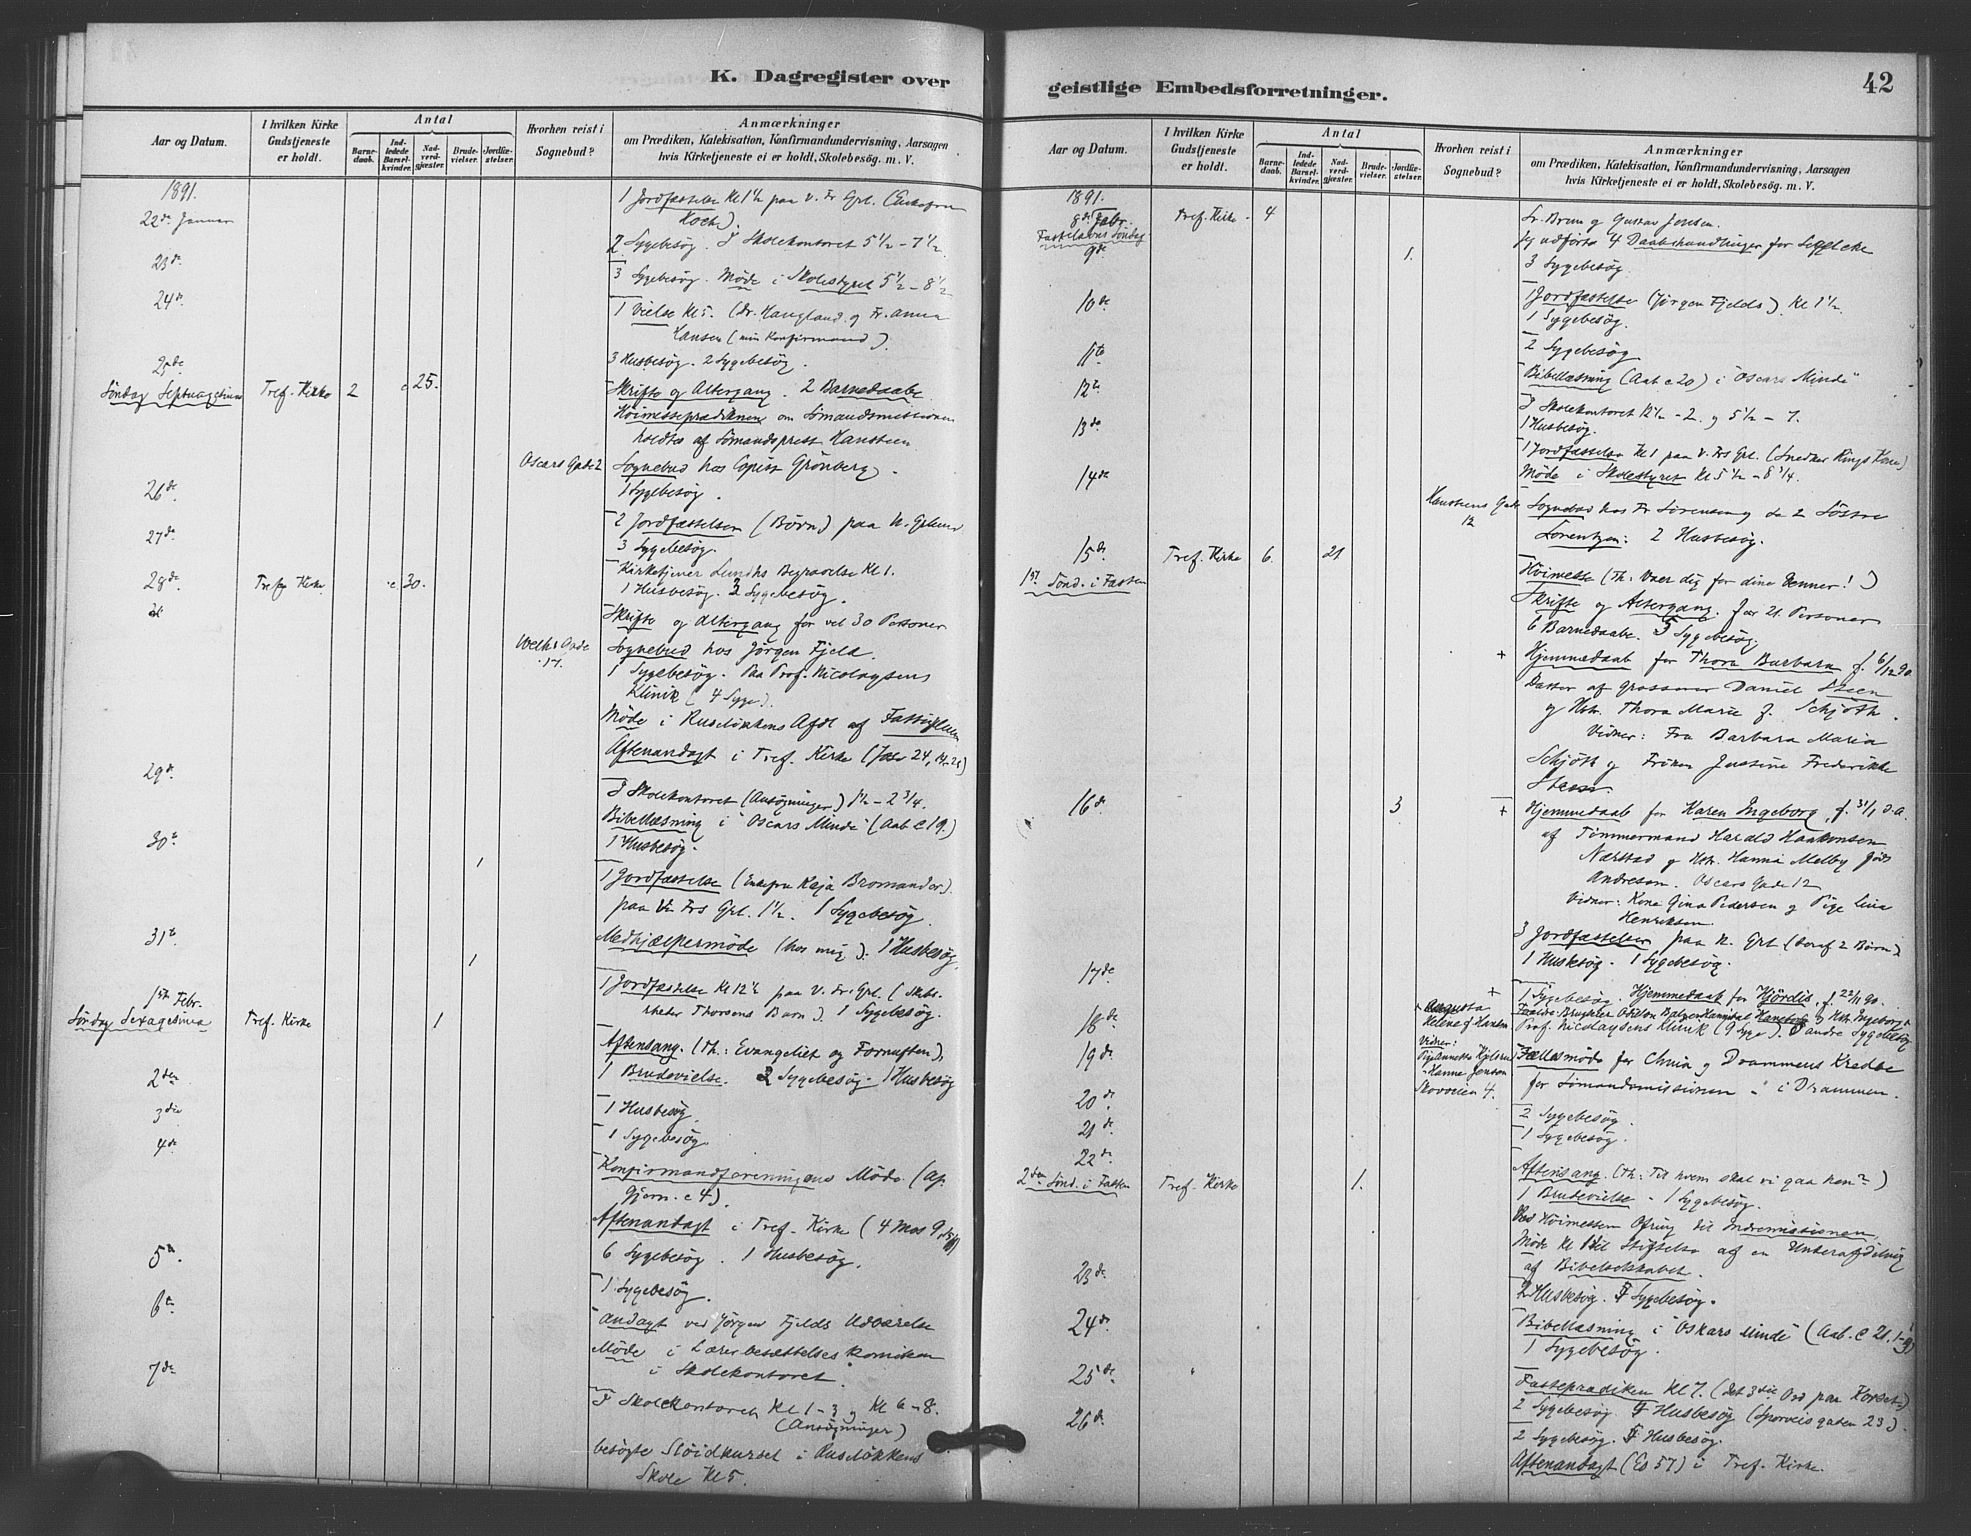 K. Dagregister over
Aar og Datum.
I hvilken Kirke
Gudstjeneste
er holdt.
Antal
Barne-
daab.
Ind-
ledede
Barsel-
kvinder.
Nad-
verd-
gjæster.
Brude-
vielser.
Jordfæ-
stelser.
Hvorhen reist i
Sognebud?
Anmærkninger
om Prædiken, Katekisation, Konfirmandundervisning, Aarsagen
hvis Kirketjeneste ei er holdt, Skolebesög. m. V.
1891.
22de Januar
1 Jordfæstelse Kl 1½ paa V. Fr. Grl.
Koch).
2 Sygebesög. I Skolekontoret 5½ – 7½.
23de
3 Sygebesög. Möde i Skolestyret 5½ – 8½
24de
1 Vielse Kl 5. (Dr. Haugland og Fr. Anna
Hansen (min Konfirmand).
3 Husbesög. 2 Sygebesög.
25de
Söndag Septuagesima Tref. Kirke 2 c 25.
Skrifte og Altergang. 2 Barnedaabe.
Höimesseprædikenen om Sömandsmissionen
holdtes af Sömandsprest Hansteen
Oscars Gade 2 Sognebud hos Copist Grönberg.
26de
1 Sygebesög.
2 Jordfæstelser (Börn) paa N. Grl.
27de
3 Sygebesög.
Kirketjener Lunds Begravelse Kl 1.
28de Tref. Kirke c 30.
1 Husbesög. 3 Sygebesög.
Skrifte og Altergang for vel 30 Personer
Welhs Gade
17.
Sognebud hos Jörgen Fjeld.
1 Sygebesög. Paa Prof. Nicolaysens
Klinik (4 Syge).
Möde i Ruselökkens Afdl af
Aftenandagt i Tref. Kirke
29de
I Skolekontoret (Ansögninger) 1½ – 2¾.
Bibellæsning i "Oscars Minde" (Aab. C 19.)
1 Husbesög.
30te 1
1 Jordfæstelse (Enkefru Kaja Bromander).
paa Vor Frs Grl. 1½. 1 Sygebesög
31te
Medhjælpermöde (hos mig). 1 Husbesög.
1
1 Jordfæstelse Kl 12½ paa V. Fr. Grl. (Skibs-
Thorsens Barn). 1 Sygebesög.
1ste Febr.
Söndag Sexagesima Tref. Kirke 1
Aftensang. (Th: Evangeliet og Fornuften),
1 Brudevielse. 2 Sygebesög – 1 Husbesög
2den
1 Husbesög.
3die
1 Sygebesög.
4de
Konfirmandforeningens Möde. (Ap.
Gjern. c 4).
Aftenandagt i Tref. Kirke (4 Mos 9,
6 Sygebesög. 1 Husbesög.
5te
1 Sygebesög.
6te
Andagt ved Jörgen Fjelds
Möde i Lærerbesættelseskomiteen
i Skolekontoret.
7de
I Skolekontoret Kl 1 – 3 og Kl 6 – 8.
(Ansögninger)
besögte Slöidkurset i Ruselökkens
Skole Kl 5.
geistlige Embedsforretninger.
42
Aar og Datum.
I hvilken Kirke
Gudstjeneste
er holdt.
Antal
Barne-
daab.
Ind-
ledede
Barsel-
kvinder.
Nad-
verd-
gjæster.
Brude-
vielser.
Jordfæ-
stelser.
Hvorhen reist i
Sognebud?
Anmærkninger
om Prædiken, Katekisation, Konfirmandundervisning, Aarsagen
hvis Kirketjeneste ei er holdt, Skolebesög. m. V.
1891.
8de Febr. Tref. Kirke 4
Fastelavns Söndag
Sr. Brun og Gustav Jensen.
Jeg udförte 4 Daabshandlinger for
9de 1.
3 Sygebesög.
10de
1 Jordfæstelse (Jörgen Fjelds). Kl 1½.
1 Sygebesög.
11te
2 Sygebesög.
12te
Bibellæsning (Aab c 20) i "Oscars Minde"
I Skolekontoret 12½ – 2. og 5½ – 7.
13de
1 Husbesög.
1 Jordfæstelse Kl 1 paa V. Frs Grl. (Snedker Rings Kone)
14de
Möde i Skolestyret Kl 5½ – 8¼.
Hanstens Gade
12
Sognebud hos Fr Sörensen og de 2 Söstre
Lorentzen: 2 Husbesög.
15de Tref. Kirke 6. 21
1ste Sönd. i Fasten
Höimesse (Th: Vaer dig for dine Venner!)
Skrifte og Altergang for 21 Personer
6 Barnedaabe. 5 Sygebesög
+ Hjemmedaab for Thora Barbara f. 6/12 90.
Datter af Grosserer Daniel Steen
og Hstr. Thora Marie f. Schjöth.
Vidner: Fru Barbara Maria
Schjöth og Fröken Justine Frederikke
Steen.
16de 3
+ Hjemmedaab for Karen Ingeborg, f. 31/1 d. A.
af Tömmermand Harald Haakonsen
Nærstad og Hstr. Hanna Melby föds
Andresen. Oscars Gade 12
Vidner: Kone Gina Pedersen og Pige Lina
Henriksen
3 Jordfæstelser paa N. Grl. (deraf 2 Börn)
1 Husbesög. 1 Sygebesög.
17de
+ 1 Sygebesög. Hjemmedaab for Hjördis, f. 22/11 90.
+ Augusta
Helene f Hansen
Vidner:
Hanna Jensen
Skovveien 4.
18de
Prof. Nicolaysens Klinik (9 Syge). 5 andre Sygebesög
19de
Fællesmöde for Chria og Drammens Kredse
for Sömandsmissionen – i Drammen.
20de
2 Sygebesög.
21de
1 Sygebesög.
22de
2den Sönd. i Fasten Tref. Kirke 1.
Aftensang. (Th: Til hvem skal vi gaa hen?)
1 Brudevielse – 1 Sygebesög.
Ved Höimessen Ofring til Indremissionen.
Möde Kl til Stiftelse af en Underafdeling
af Bibelselskabet.
23de
2 Husbesög. Sygebesög.
24de
Bibellæsning i "Oskars Minde" (Aab. C 21.
1 Sygebesög.
25de
Fasteprædiken Kl 7. (Det 3die Ord paa Korset)
2 Sygebesög. Husbesög (Sporveisgaten 23).
26de
2 Sygebesög. Husbesög.
Aftenandagt (Es 57) i Tref. Kirke.